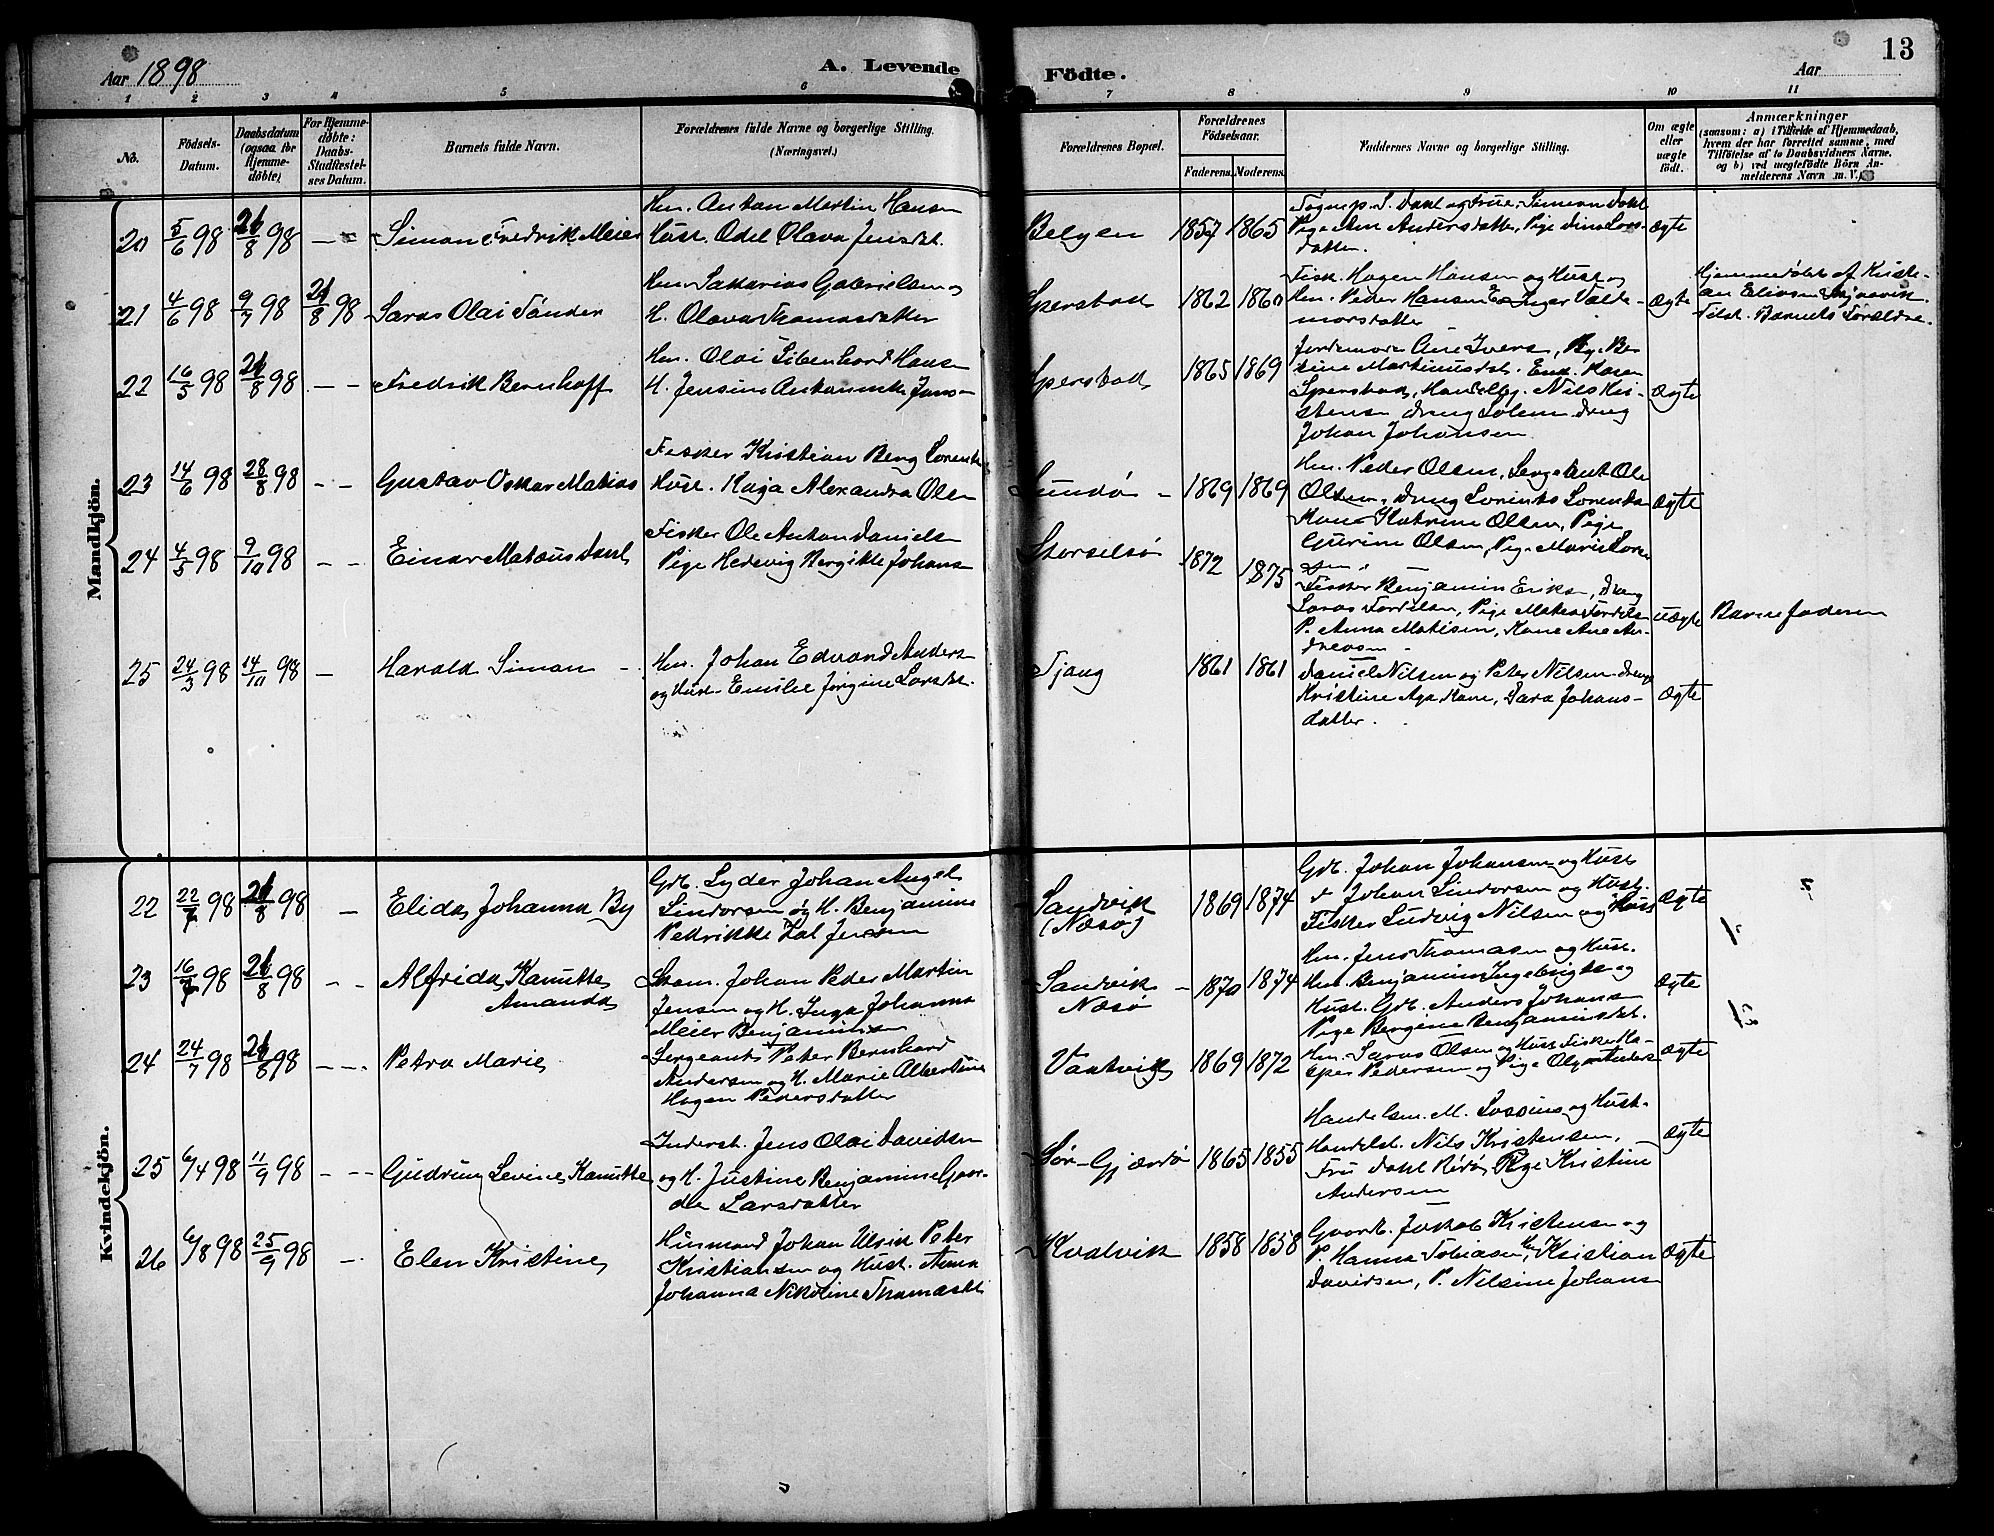 Aar 1898
A. Levende
Födte.
Aar
13
1 2 3 4 5 6 7 8 9 10 11
No.
Födsels-
Datum.
Daabsdatum
(ogsaa for
Hjemme-
döbte)
For Hjemme-
døbte:
Daabs-
Stadfæstel-
ses Datum.
Barnets fulde Navn.
Forældrenes fulde Navne og borgerlige Stilling.
(Næringsvei.)
Forældrenes Bopæl.
Forældrenes
Födselsaar.
Faderens. Moderens.
Faddernes Navne og borgerlige Stilling.
Om ægte
eller
uægte
födt.
Anmærkninger
(saasom: a) i Tilfælde af Hjemmedaab,
hvem der har forrettet samme, med
Tilföielse af to Daabsvidners Navne,
og b) ved uægtefödte Börn An-
melderens Navn m. V.)
Mandkjön.
20 5/6 98 21/8 98 - - Simon Fredrik Meier
Hm. Anton Martin Hansen
Hust. Odel Olava Jensdt.
Selgen 1857 1865
Pige Ane Andersdatter, Pige Dina Lars-
datter.
ægte
21 4/6 98 9/7 98 21/8 98 Saras Olai Tønder
Hm. Sakarias Gabrielsen og
H. Olava Thomasdatter
Sperstad 1862 1860
Fisk. Hagen Hansen og Hust og
Hm. Peder Hansen Inger Valde-
morsdatter
ægte
Hjemmedøbt af Kristi-
an Eliasen
Tilst. Barnets Forældre.
22 16/5 98 21/8 98 - - Fredrik Bernhoff
Hm. Olai Hans
H. Jensine Antonette Jens-
Sperstad 1865 1869
Jordemor Ane Ivers, Pg. Be
sine Martinusdt. Enk. Karen
Sperstad, Handelbg. Nils Kri-
stensen dreng Solem dreng
Johan Johansen.
ægte
23 14/6 98 28/8 98 - - Gustav Oskar Matias
Fisker Kristian Berg Lorents
Hust. Kaja Alexandra Olsn
Sundø - 1869 1869
Hm. Peder Olsen, Sergeant Ole
Olsen, dreng Lorents Lorents
Kone Katrine Olsen, Pige
Gurine Olsen, Pige Marie Loren
sen.
ægte
24 4/5 98 9/10 98 - - Einar Mateus Dahl
Fisker Ole Anton Daniels
Pige Hedevig Bergitte Johans
Storselsø 1872 1875
Fisker Benjamin Eriks, dreng
Saras Tordelsen, Pige Matea Tordels
P. Anna Matisen, Kone Ane An-
dreasn
uægte
Barnefaderen
25 24/3 98 14/10 98 - Harald Simon
Hm. Johan Edvard Anders
og Hust. Emilie Jørgine Larsdt.
Tjong 1861 1861
Daniel Nilsen og Peter Nilsen drenge
Kristine Aga Kone, Sara Johans-
datter.
ægte
Kvindekjön.
22 22/7 98 21/8 98 - Elida Johanna By
Gdb. Lyder Johan Angel
Sindorsen og H. Benjamine
Pedrikke Zal Jensen
Sandvik
(Næsø)
1869 1874
Gdb. Johan Johansen og Hust
d Johan Sindorsen og Hust.
Fisker Ludvig Nilsen og Hust
ægte
23 16/7 98 21/8 98 - - Alfrida Kanutte
Amanda
Strm. Johan Peder Martin
Jensen og H. Inga Johanna
Meier Benjaminsen
Sandvik -
Næsø
1870 1874
Hm. Jens Thomasen og Hust.
Hm. Benjamin Ingebrigts og
Hust. Gdb. Anders Johans
Pige Bergine Benjaminsdt.
ægte
24 24/7 98 21/8 98 - - Petra Marie
Sergeant Peter Bernhard
Andersen og H. Marie Albertine
Hagen Pedersdatter
Vaatvik 1869 1872
Hm. Saras Olsen og Hust Fisker Ka-
sper Pedersen og Pige Olga Anders
ægte
25 6/4 98 11/9 98 - - Gudrun Levine Kanutte
Inderst. Jens Olai Davidsen
og H. Justine Benjamine Gjær-
die Larsdatter
Sør-Gjærø 1865 1855
Handelsm. M. Lossius og Hust.
Handelst. Nils Kristensen,
Fru Dahl Rødø, Pige Kristine
Andersen
ægte
26 6/8 98 25/9 98 - Elen Kristine
Husmand Johan Ulrik Peter
Kristiansen og Hust. Anna
Johanna Nikoline Thomasdt
Kvalvik 1858 1858
Gaardb. Jakob Kristensen og
P. Hanna Tobiasen, Hm Kristian
Davidsen, P. Nilsine Johans
ægte